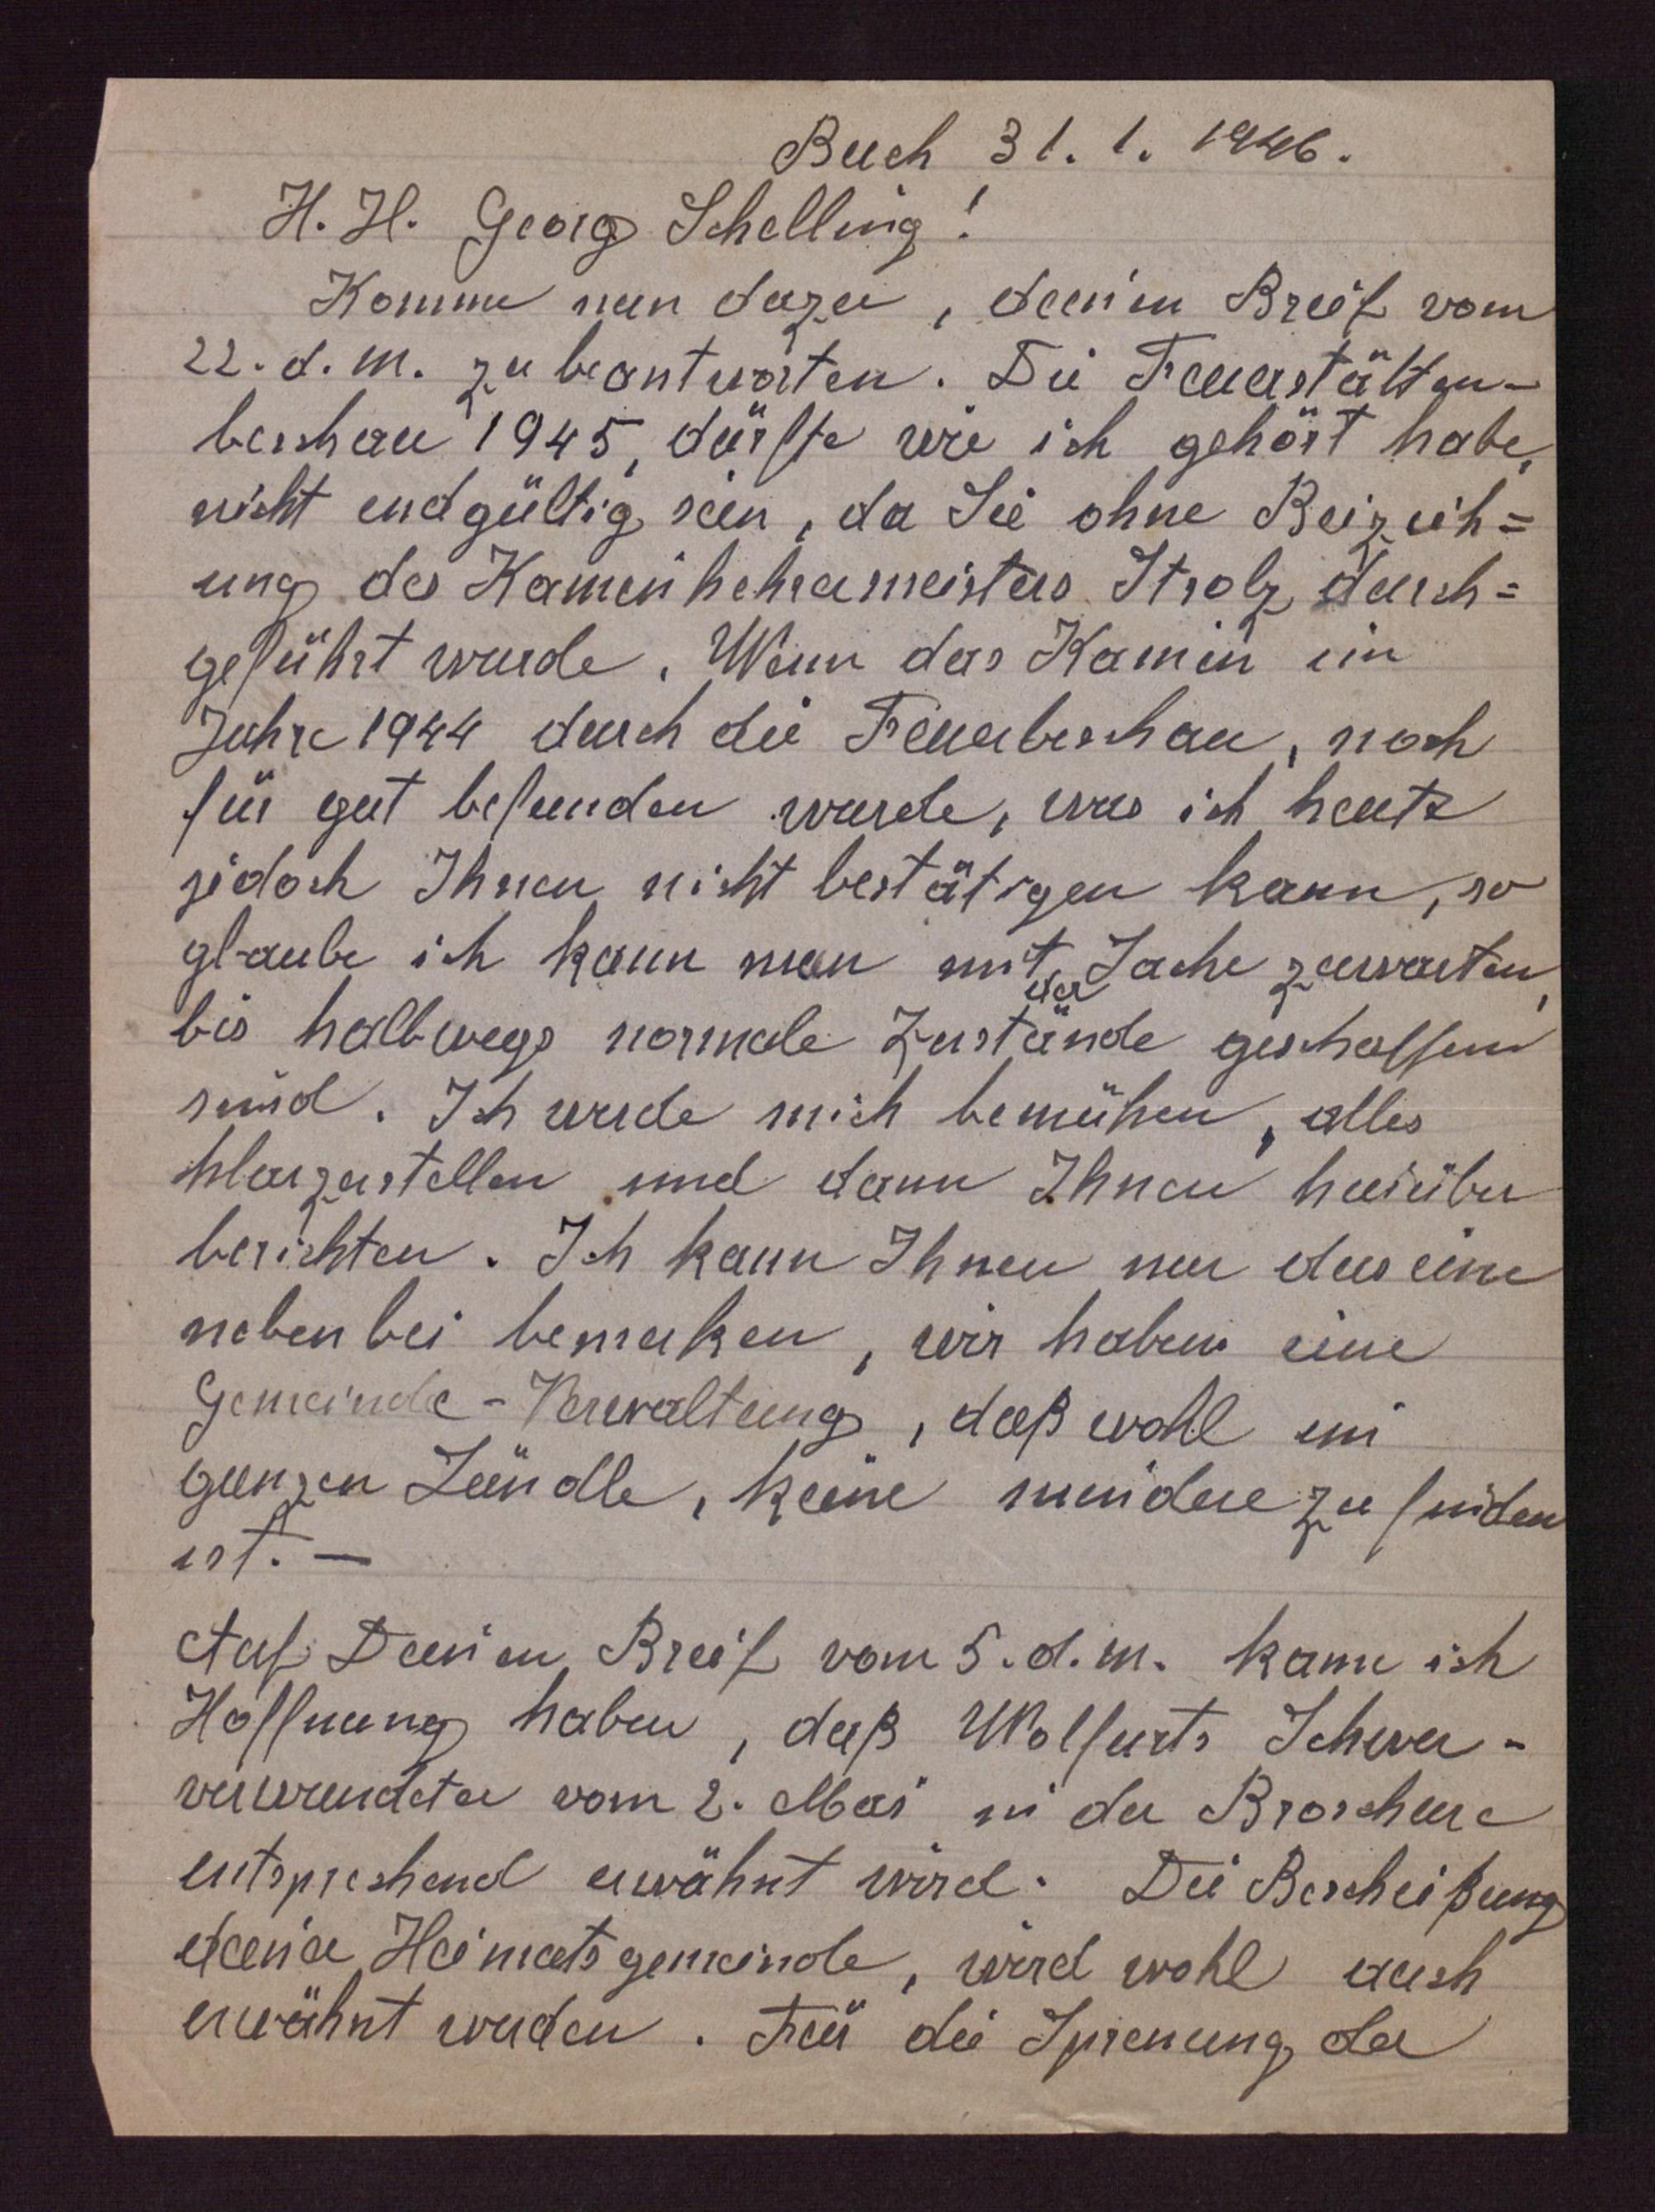 Buch 31. 1. 1946.
H. H. Georg Schelling!
Komme nun dazu, deinen Breif vom
22. d. M. zu beantworten. Die Feuerstätten-
beschau 1945, dürfte wie ich gehört habe,
nicht endgültig sein, da Sie ohne Beizieh=
ung des Kaminkehrermeisters Strolz durch=
geführt wurde. Wenn das Kamin im
Jahre 1944 durch die Feuerbeschau, noch
für gut befunden wurde, was ich heute
jedoch Ihnen nicht bestätigen kann, so
glaube ich kann man mit der Sache zuwarten,
bis halbwegs normale Zustände geschaffen
sind. Ich werde mich bemühen, alles
klarzustellen und dann Ihnen hierüber
berichten. Ich kann Ihnen nur das eine
nebenbei bemerken, wir haben eine
Gemeinde-Verwaltung, daß wohl im
ganzen Ländle, keine mindere zu finden
ist. —
Auf Deinen Breif vom 5. d. m. kann ich
Hoffnung haben, daß Wolfurts Schwer-
verwundeter vom 2. Mai in der Broschure
entsprechend erwähnt wird. Die Bescheißung
deiner Heimatsgemeinde, wird wohl auch
erwähnt werden. Für die Sprenung der